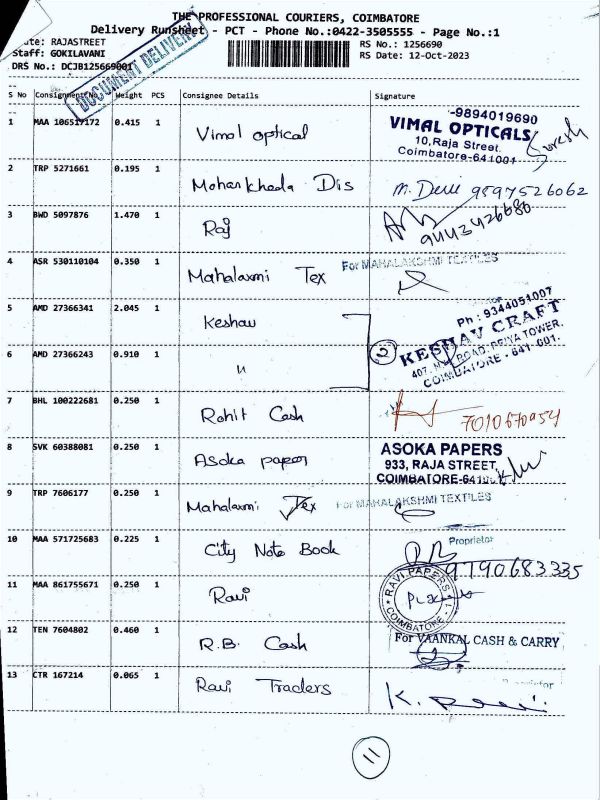 THE PROFESSIONAL COURIERS, COIMBATORE
Delivery Runsheet - PCT - Phone No.:0422-3505555 - Page No.:1
Route: RAJASTREET
RS No.: 1256690
Staff: GOKILAVANI
RS Date: 12-Oct-2023
DRS No.: DCJB125669001
DOCUMENT DELIVERY
S No Consignment No. Weight PCS Consignee Details Signature
1 MAA 106517172 0.415 1 Vimal optical
-9894019690
VIMAL OPTICALS
10,Raja Street.
Coimbatore-641001
Suresh
2 TRP 5271661 0.195 1 Mohankheda Dis M. Devi 9597526062
3 BWD 5097876 1.470 1 Raj
9443426680
4 ASR 530110104 0.350 1 Mahalaxmi Tex For MAHALAKSHMI TEXTILES
5 AMD 27366341 2.045 1 Keshav
6 AMD 27366243 0.910 1 "
2
Ph : 9344051007
KESHAV CRAFT
ROAD, PRIYA TOWER,
COIMBATORE - 641 001.
7 BHL 100222681 0.250 1 Rohit Cash 7010670954
8 SVK 60388081 0.250 1 Asoka paper
ASOKA PAPERS
933, RAJA STREET,
COIMBATORE-641001
9 TRP 7606177 0.250 1 Mahalaxmi Tex For MAHALAKSHMI TEXTILES
10 MAA 571725683 0.225 1 City Note Book
Proprietor
9790683335
11 MAA 861755671 0.250 1 Ravi
RAVI PAPERS
COIMBATORE - 1
12 TEN 7604802 0.460 1 R.B. Cash For VAANKAL CASH & CARRY
Proprietor
13 CTR 167214 0.065 1 Ravi Traders K. Ravi
11